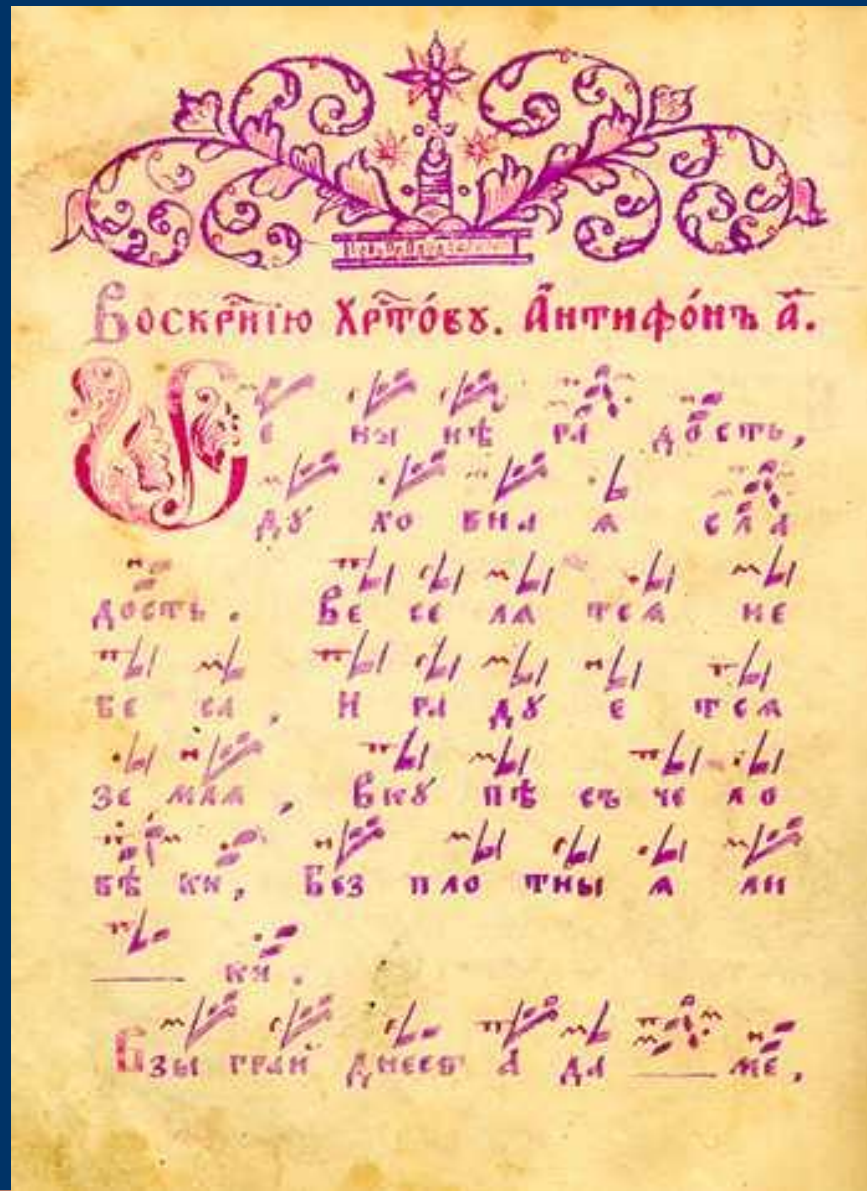 Воскр҃нїю Хрⷭ҇то́вꙋ. А҆нтифо́нъ а҃.
е ны нѣ ра дость,
дꙋ хо вна ѧ сла
дость . Ве се лѧ тсѧ не
бе са , и ра дꙋ е тсѧ
зе млѧ , вкꙋ пѣ съ че ло
вѣ ки, Без пло тны ѧ ли
ки .
Взы грай днесь а да ме,